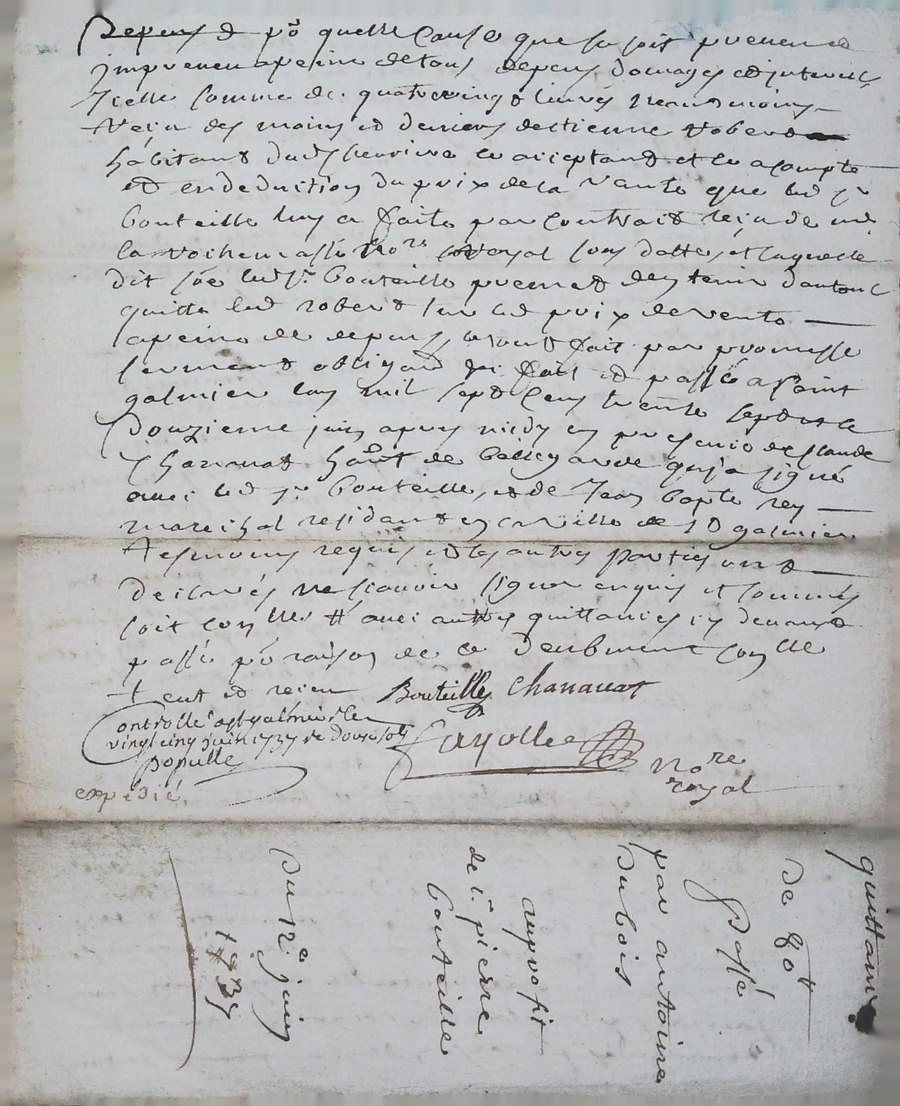 Depens & po quelle cause que ce soit prevenu &
impreveu a peine de tous depens domages et interetz
Icelle somme de quatrevingt livres neantmoins
receu des mains et deniers destienne Robert
habitant du acceptant et ce a compte
et en deduition du prix de la vante que led sr
bouteille luy a faite par contrait receu de me
la notre Royal sous dattes, et laquelle
dit led sr. bouteille promet den tenir dautant
quitte led robert sur led prix de vente
a peine de depens, le tout fait par promesse
serment obligaon fait et passé a saint
galmier lan mil sept cens trente sept et le
douzieme juin apres midy en presence de Claude
Chanauat habt de bellegarde qui a signé
avec led sr bouteille, et de Jean bapte rey
marechal residant en cette ville de st galmier
tesmoins requis et les autres parties ont
declarés ne scavoir signer enquis et sommés
soit conlléé avec autres quittances cy devant
passé po raison de ce deubment conllé
tent et rejeu Bouteille Chanauat
Controllé a st galmier le
vingt cinq juin 1737 re douze sols
populle
fayolle
nore
royal
expédié.
quittance
de 80#
passé
par antoine
Dubois
au profit
de sr pierre
bouteille
Du 12e juin
1737